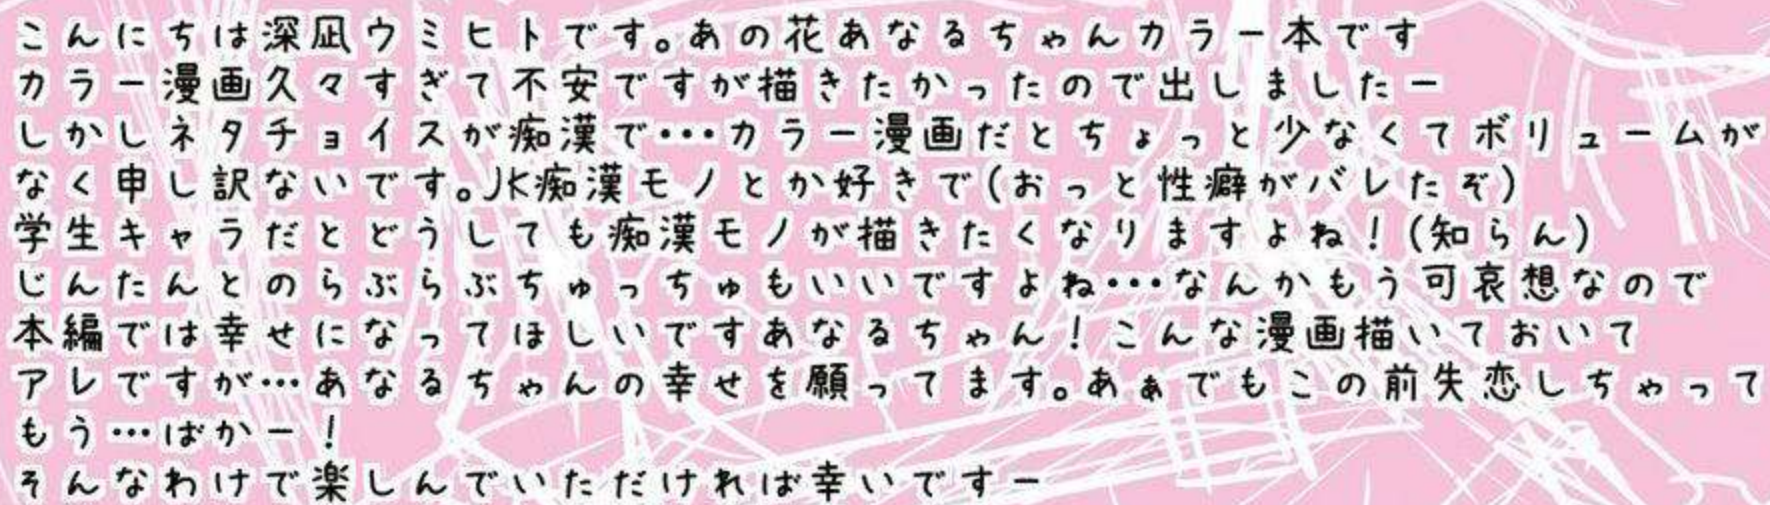 こんにちは深凪ウミヒトです。あの花あなるちゃんカラー本です
カラー漫画久々すぎて不安ですが描きたかったので出しましたー
しかしネタチョイスが痴漢で…カラー漫画だとちょっと少なくてボリュームが
なく申し訳ないです。JK痴漢モノとか好きで(おっと性癖がバレたぞ)
学生キャラだとどうしても痴漢モノが描きたくなりますよね！(知らん)
じんたんとのらぶらぶちゅっちゅもいいですよね…なんかもう可哀想なので
本編では幸せになってほしいですあなるちゃん！こんな漫画描いておいて
アレですが…あなるちゃんの幸せを願ってます。あぁでもこの前失恋しちゃって
もう…ばかー！
そんなわけで楽しんでいただければ幸いですー